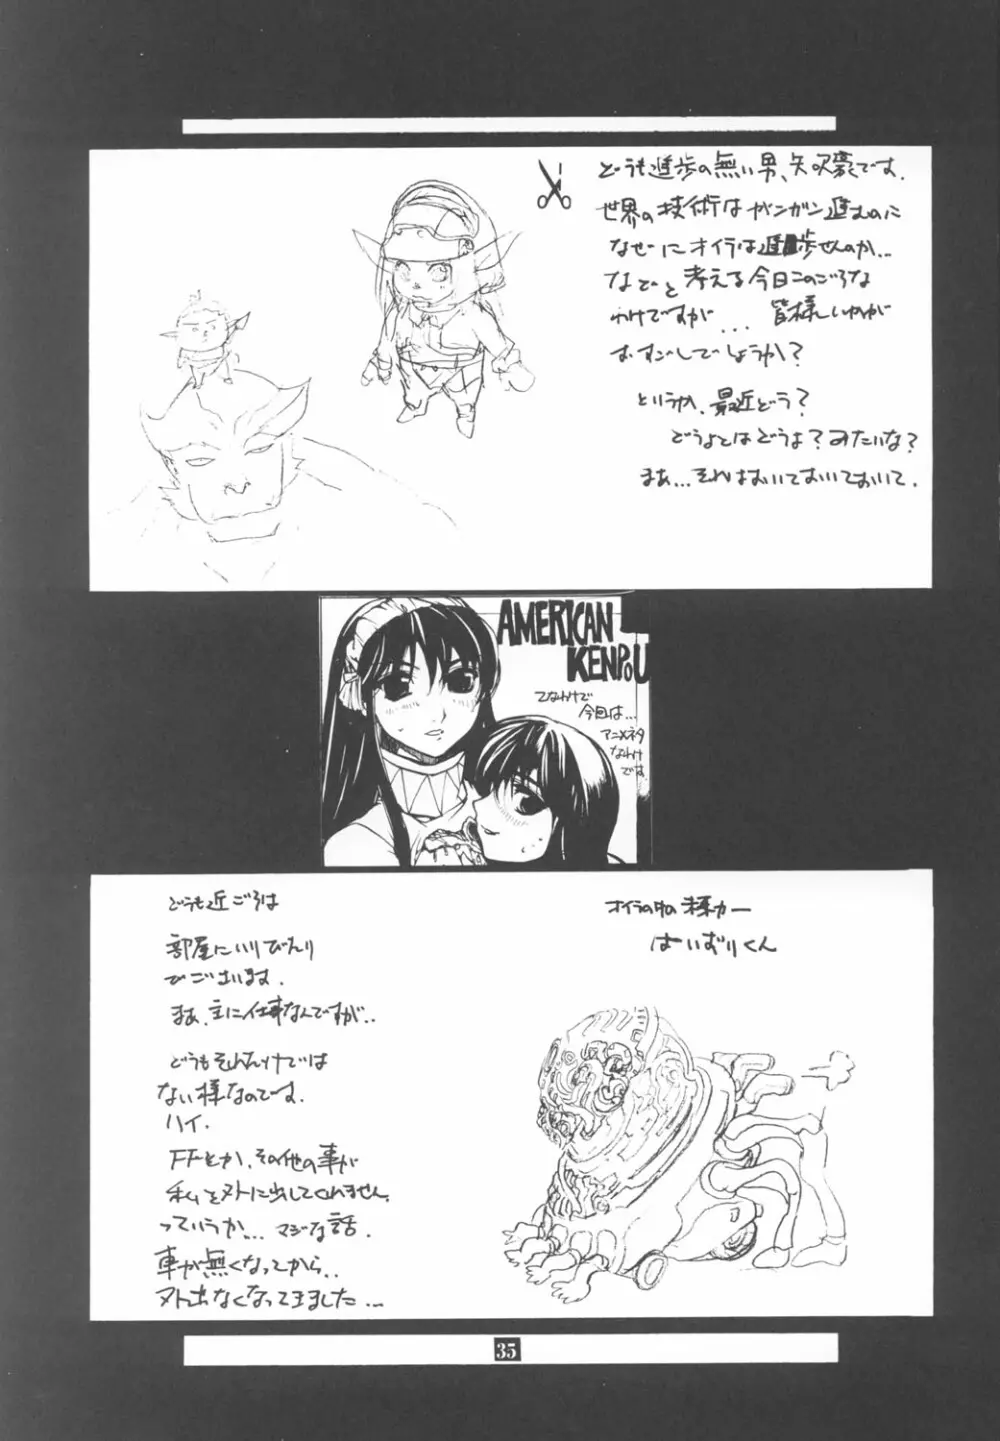 どうも進歩の無い男、矢吹豪です.
世界の技術はガンガン進むのに
なぜにオイラは進歩せんのか...
などと考える今日このごろな
わけですが... 皆様いかが
おすごしでしょうか?
というか、最近どう?
どうよとはどうよ?みたいな?
まぁ...それはおいておいておいて.
AMERICAN
KENPOU
てなわけで
今回は...
アニメネタ
なわけ
です.
どうも近ごろは
部屋にいりびたり
でございます.
まぁ、主に仕事なんですが..
どうもそれだけでは
ない様なのです.
ハイ.
FFとか、その他の事が
私を外に出してくれません.
っていうか... マジな話.
車が無くなってから..
外出なくなってきました...
オイラの中の様カー
はいずりくん
35